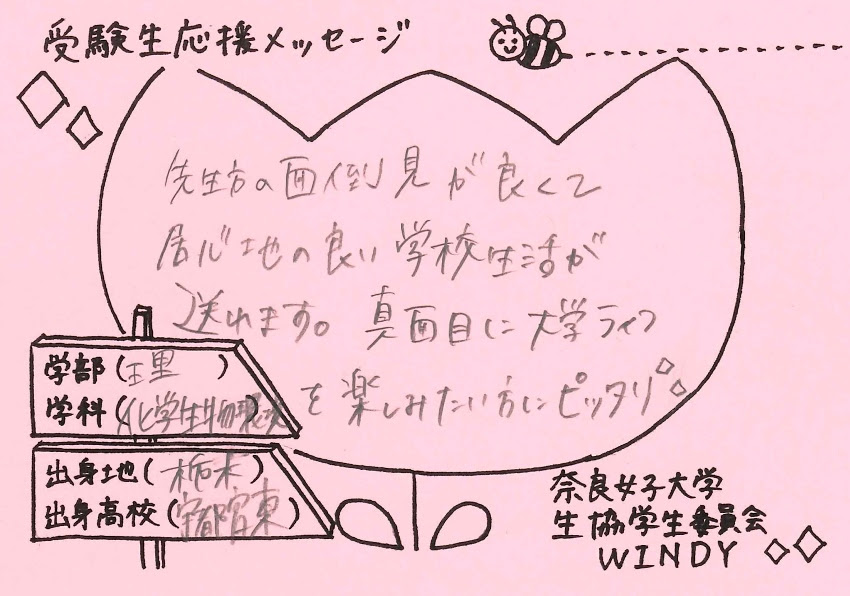 受験生応援メッセージ
先生方の面倒見が良くて
居心地の良い学校生活が
送れます。真面目に大学ライフ
を楽しみたい方にピッタリ
学部(理)
学科(化学生物環境)
出身地(栃木)
出身高校(宇都宮東)
奈良女子大学
生協学生委員会
WINDY